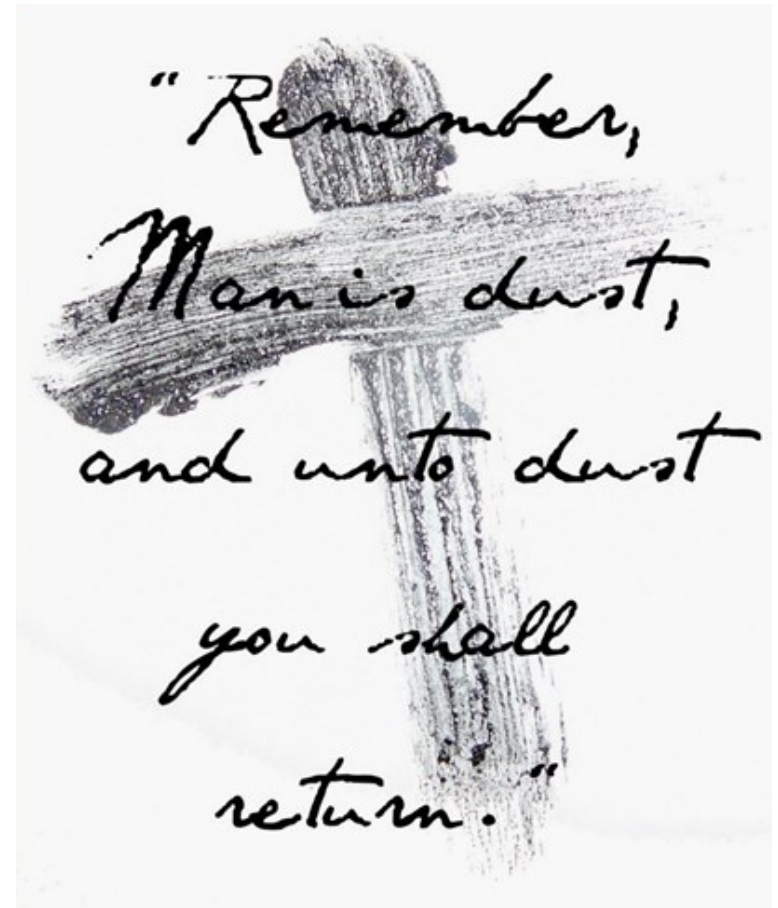 “Remember,
Man is dust,
and unto dust
you shall
return.”